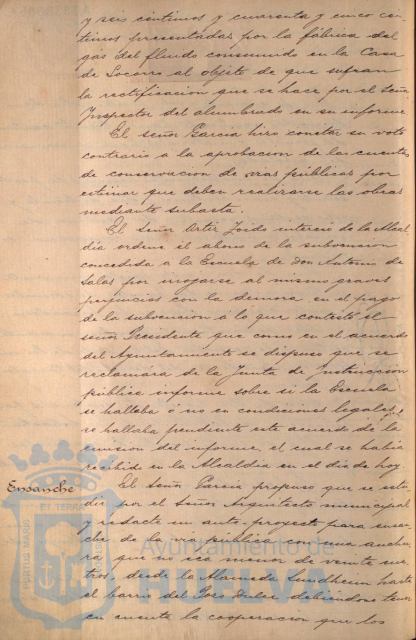 y seis centimos y cuarenta y cinco cen-
timos presentadas por la fábrica del
gas del fluido consumido en la Casa
de Socorro al objeto de que sufran
la rectificacion que se hace por el Señor
Inspector del alumbrado en su informe
El señor Garcia hizo constar su voto
contrario a la aprobacion de las cuentas
de conservacion de vias públicas por
estimar que deben realizarse las obras
mediante subasta.
El Señor Ortiz interesó de la Alcal
dia ordene el abono de la subvencion
concedida a la Escuela de don Antonio de
Salas por irrogarse al mismo graves
perjuicios con la demora en el pago
de la subvencion á lo que contestó el
señor Presidente que como en el acuerdo
del Ayuntamiento se dispuso que se
reclamára de la Junta de Instruccion
pública informe sobre si la Escuela
se hallaba ó nó en condiciones legales,
se hallaba pendiente este acuerdo de la
emision del informe, el cual se habia
recibido en la Alcaldia en el dia de hoy.
Ensanche
El Señor Garcia propuso que se estu
die por el Señor Arquitecto municipal
y redacte un ante-proyecto para ensan
che de la via pública con una anchu
ra que no sea menos de veinte me
tros, desde la Alameda Sundheim hasta
el barrio del debiendose tener
en cuenta la cooperacion que los
PORTUS MARIS ET TERRAE CUSTODIA
Ayuntamiento de
HUELVA